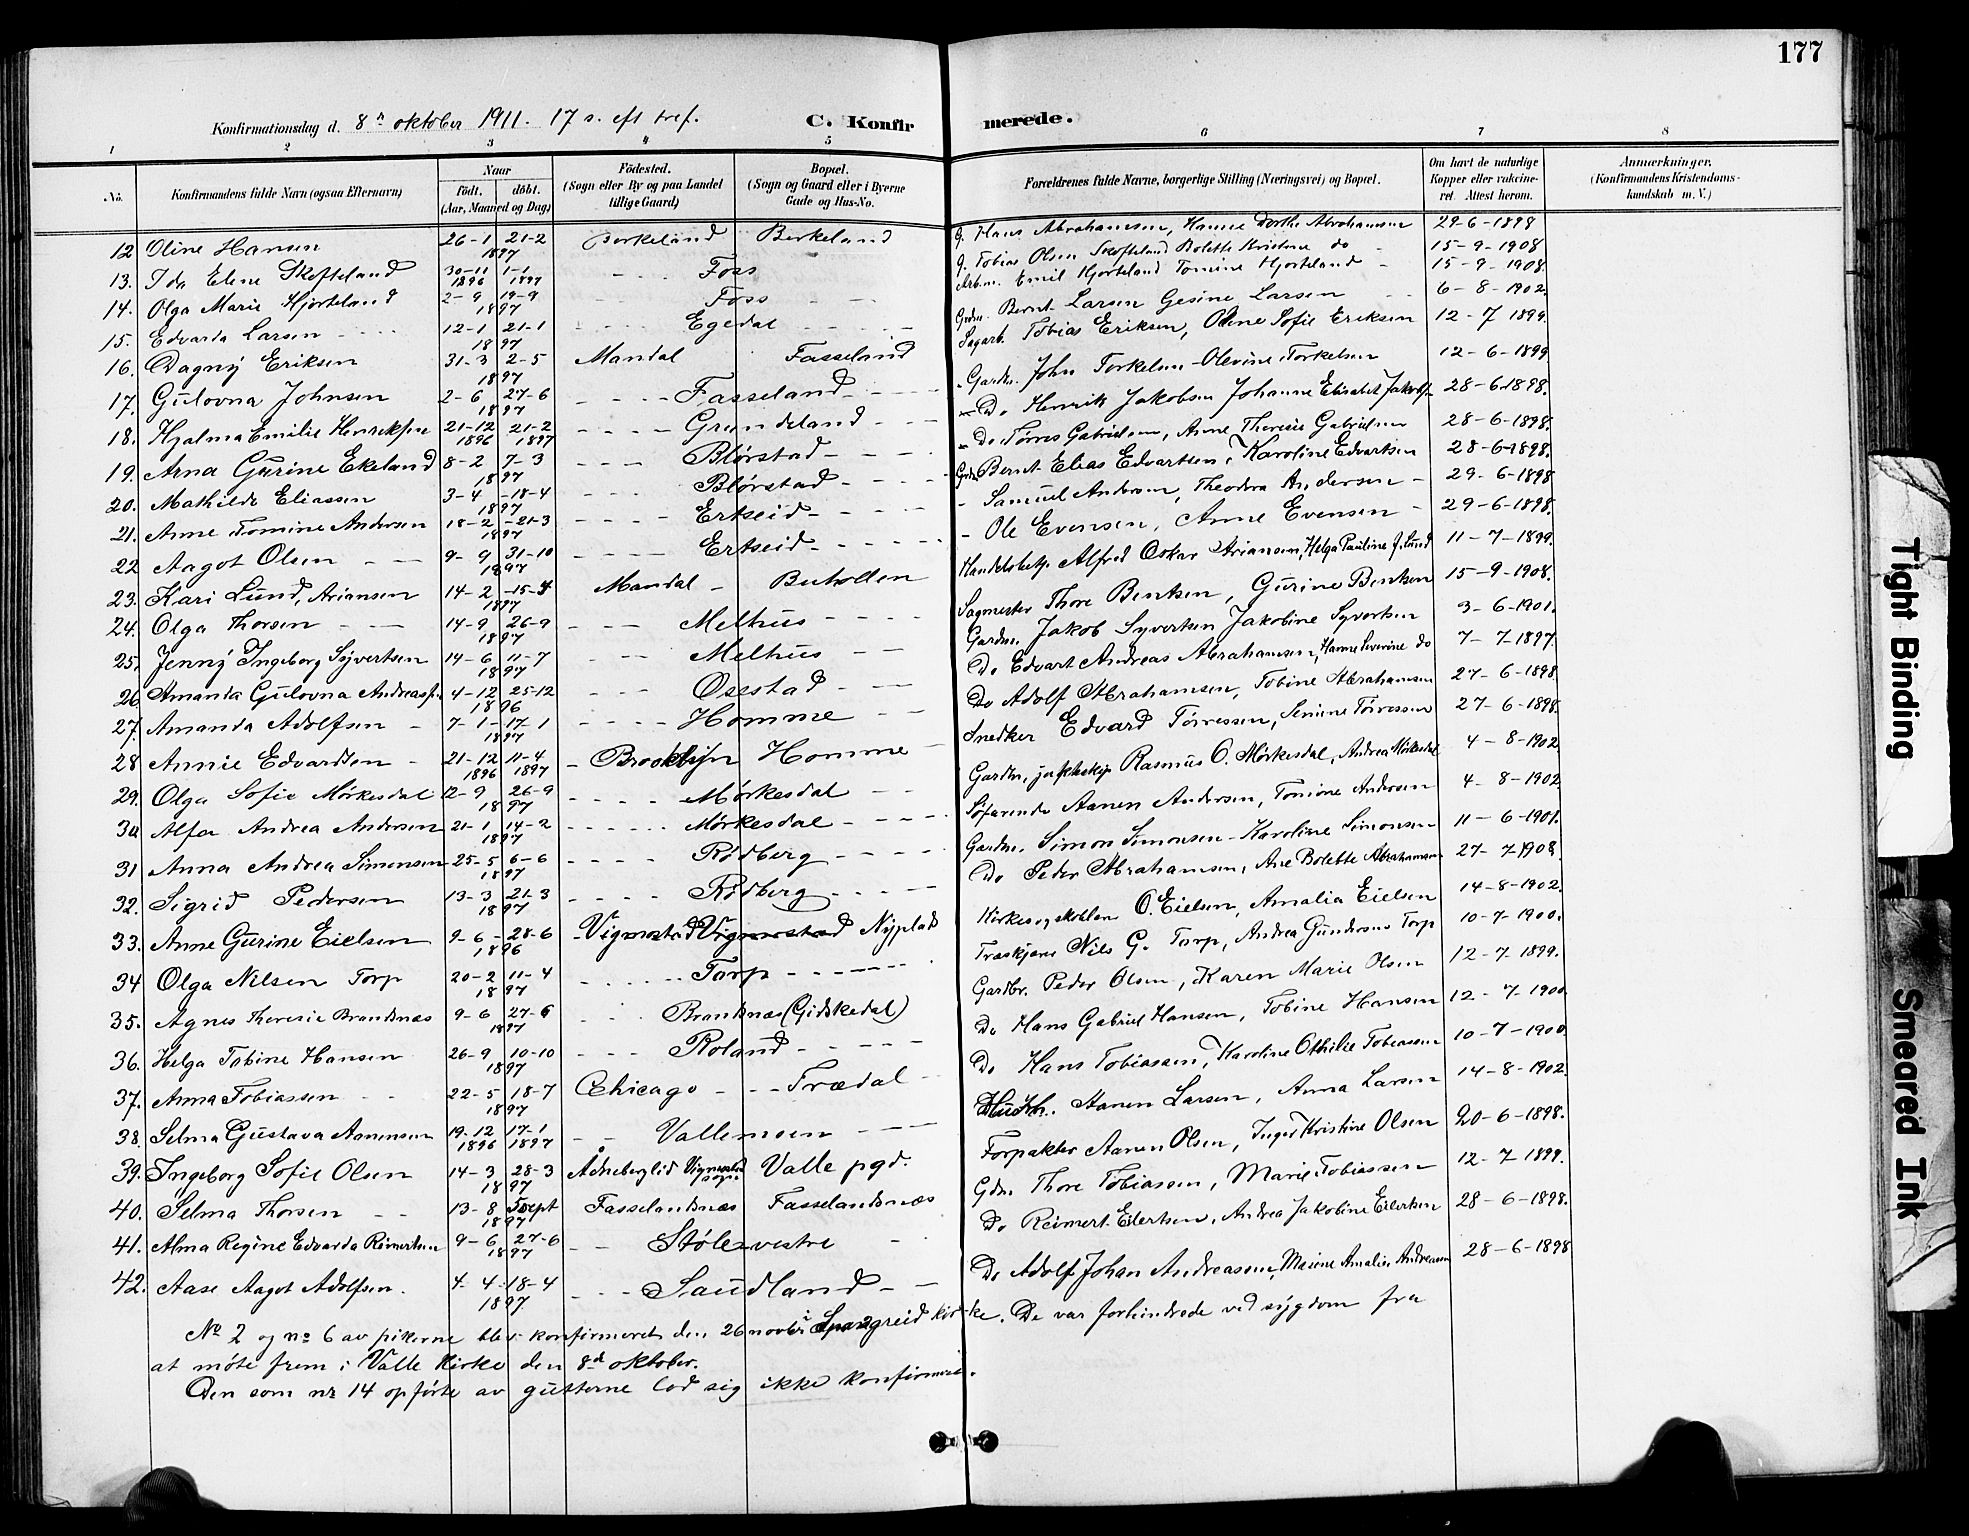 177
Konfirmationsdag d. 8n oktober 1911. 17 s. eft tref. C. Konfirmerede.
1 2 3 4 5 6 7 8
No. Konfirmandens fulde Navn (ogsaa Efternavn) Naar födt. döbt. (Aar, Maaned og Dag) Födested. (Sogn eller By og paa Landet tillige Gaard) Bopæl. (Sogn og Gaard eller i Byerne Gade og Hus-No. Forældrenes fulde Navne, borgerlige Stilling (Næringsvei) og Bopæl. Om havt de naturlige Kopper eller vaccineret. Attest herom. Anmærkninger. (Konfirmandens Kristendomskundskab m. V.)
12 Oline Hansen 26-1 21-2 1897 Berkeland Berkeland G. Hans Abrahamsen, Hanne Dorthe Abrahamsen 29-6-1898
13. Ida Elene Skofteland 30-11 1896 1-1 1897 Foss G. Tobias Olsen Skofteland Bolette Kristine do 15-9-1908
14. Olga Marie Hjorteland 2-9 19-9 1897 Foss Arbm. Emil Hjorteland Tomine Hjorteland 15-9-1908.
15. Edvarda Larsen 12-1 21-1 1897 Egedal Grdm. Bernt Larsen Gesine Larsen 6-8-1902.
16. Dagny Eriksen 31-3 2-5 1897 Mandal Fasseland Sagarb. Tobias Eriksen, Oline Sofie Eriksen 12-7 1899.
17. Gulovna Johnsen 2-6 27-6 1897 Fasseland Gardm. John Torkelsen Olevine Torkelsen 12-6-1899
18. Hjalma Emilie Henriksen 21-12 1896 21-2 1897 Grundeland Do Henrik Jakobsen Johanne Elisabet Jakobs 28-6-1898.
19. Arna Gurine Ekeland 8-2 7-3 1897 Blörstad Do Törres Gabrielsen, Anne Theresie Gabrielsen 28-6-1898.
20. Mathilde Eliassen 3-4 18-4 1897 Blörstad Grdm Bernt Elias Edvartsen, Karoline Edvartsen 28-6-1898.
21. Anne Tomine Andersen 18-2 21-3 1897 Ertseid Samuel Andersen, Theodora Andersen 29-6-1898
22 Aagot Olsen 9-9 31-10 1897 Ertseid Ole Evensen, Anne Evensen 29-6-1898.
23. Kari Lund, Ariansen 14-2 15-4 1897 Mandal Buhollen Handelsbetj. Alfred Oskar Ariansen, Helga Pauline J. Lund 11-7-1899.
24. Olga Thorsen 14-9 26-9 1897 Melhus Sagmester Thore Bentsen, Gurine Bentsen 15-9-1908.
25. Jenny Ingeborg Syvertsen 14-6 11-7 1897 Melhus Gardm. Jakob Syvertsen Jakobine Syvertsen 3-6-1901.
26 Amanda Gulovna Andreassen 4-12 25-12 1896 Osestad Do Edvart Andreas Abrahamsen, Hanne Severine do 7-7-1897.
27. Amanda Adolfsen 7-1 17-1 1897 Homme Do Adolf Abrahamsen, Tobine Abrahamsen 27-6-1898
28 Annie Edvardsen 21-12 1896 11-4 1897 Brooklyn Homme Snedker Edvard Törressen, Serine Törressen 27-6-1898.
29. Olga Sofie Mörkesdal 12-9 26-9 1897 Mörkesdal Gardm. Rasmus O. Mörkesdal, Andrea Mörkesdal 4-8-1902
30 Alfa Andrea Andersen 21-1 14-2 1897 Mörkesdal Söfarende Aanen Andersen, Tomine Andersen 4-8-1902
31 Anna Andrea Simonsen 25-5 6-6 1897 Rödberg Gardm. Simon Simonsen Karoline Simonsen 11-6-1901.
32. Sigrid Pedersen 13-3 21-3 1897 Rödberg Do Peder Abrahamsen, Ane Bolette Abrahamsen 27-7-1903.
33. Anne Gurine Eielsen 9-6 28-6 1896 Vigmostad Vigmostad Nyplads O. Eielsen, Amalia Eielsen 14-8-1902.
34 Olga Nilsen Torp 20-2 11-4 1897 Torp Træskjærer Nils G. Torp, Andrea Gunders Torp 10-7-1900.
35. Agnes Theresie Brandsnæs 9-6 27-6 1897 Brandsnæs (Gidskedal) Gardbr. Peder Olsen, Karen Marie Olsen 12-7 1899.
36. Helga Tobine Hansen 26-9 10-10 1897 Roland Do Hans Gabriel Hansen, Tobine Hansen 12-7-1900
37. Anna Tobiassen 22-5 18-7 1897 Chicago Trædal Do Hans Tobiassen, Karoline Othilie Tobiassen 10-7-1900
38. Selma Gustava Aanensen 19-12 1896 17-1 1897 Vallemoen Aanen Larsen, Anna Larsen 14-8-1902.
39. Ingeborg Sofie Olsen 14-3 28-3 1897 Ådneberglid Vigmostad sogn Valle pgd. Forpakter Aanen Olsen, Inger Kristine Olsen 20-6-1898.
40. Selma Thorsen 13-8 5 sept 1897 Fasselandsnæs Fasselandsnæs Gdm. Thore Tobiassen, Marie Tobiassen 12-7 1899.
41. Alma Regine Edvarda Reimertsen 9-6 27-6 1897 Støle vestre Do Reimert Eilertsen, Andrea Jakobine Eilertsen 28-6-1898.
42. Aase Aagot Adolfsen. 4-4 18-4 1897 Saudland Do Adolf Johan Andreassen, Marine Amalie Andreassen 28-6-1898
No 2 og no 6 av pikerne blev konfirmeret den 26 novbr i Spangreid kirke. De var forhindrede ved sygdom fra
at möte frem i Valle kirke den 8d oktober.
Den som nr 14 opförte av gutterne lod sig ikke konfirmere.
Tight Binding
Smeared Ink